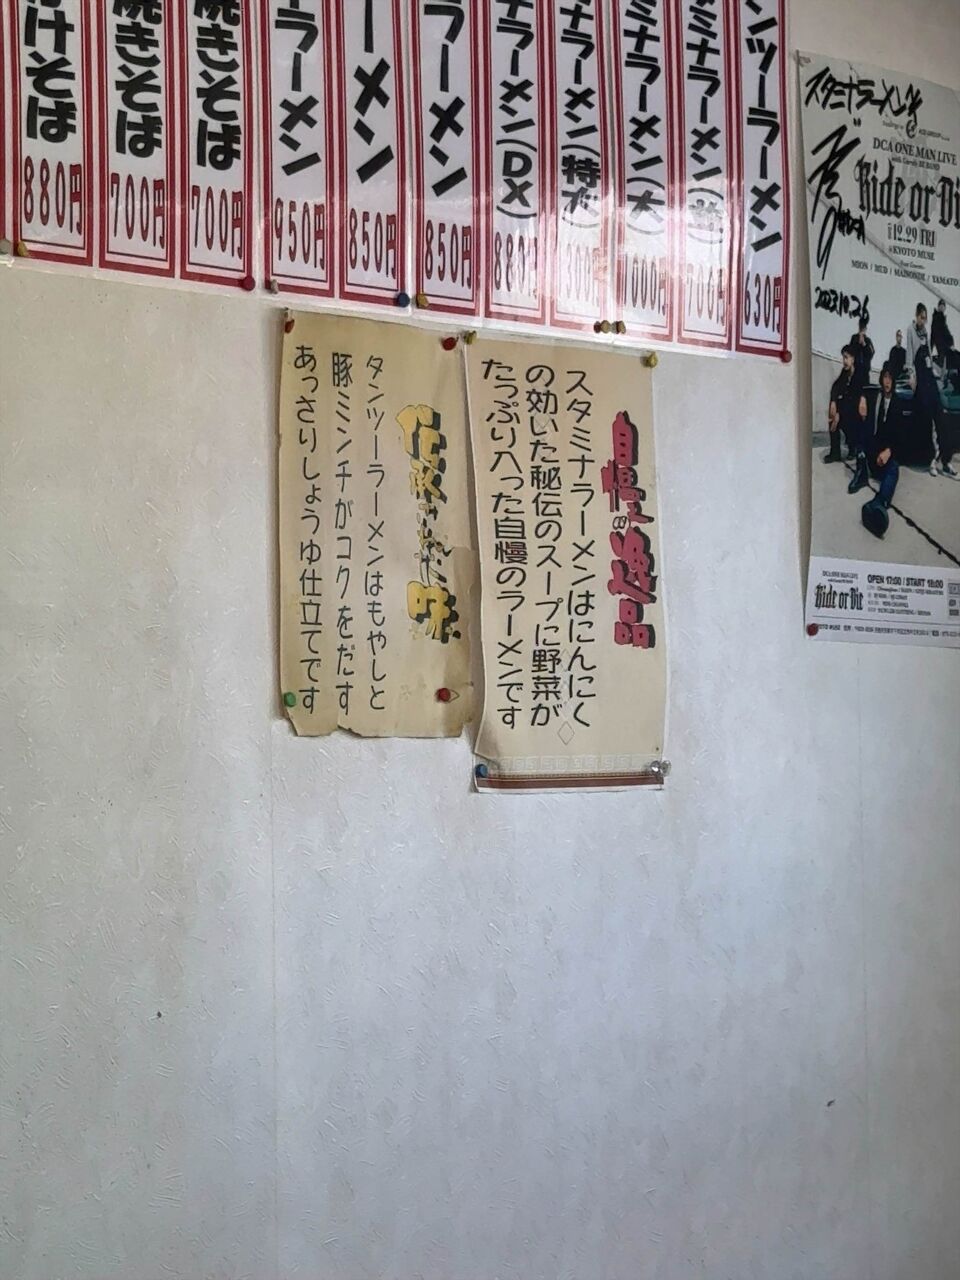 ンツーラーメン
630円
ミナラーメン
700円
ミナラーメン(大)
1000円
ナラーメン(特大)
1300円
ラーメン(DX)
880円
ラーメン
850円
ーメン
850円
ラーメン
950円
焼きそば
700円
焼きそば
700円
けそば
880円
自慢の逸品
スタミナラーメンはにんにく
の効いた秘伝のスープに野菜が
たっぷり入った自慢のラーメンです
伝承された味
タンツーラーメンはもやしと
豚ミンチがコクをだす
あっさりしょうゆ仕立てです
スタミナラーメン
DCA ONE MAN LIVE
Ride or Die
12.29 FRI
KYOTO MUSE
MION / MUD / MAISONDE / YAMATO
2023.10.26
Ride or Die
OPEN 17:00 / START 18:00